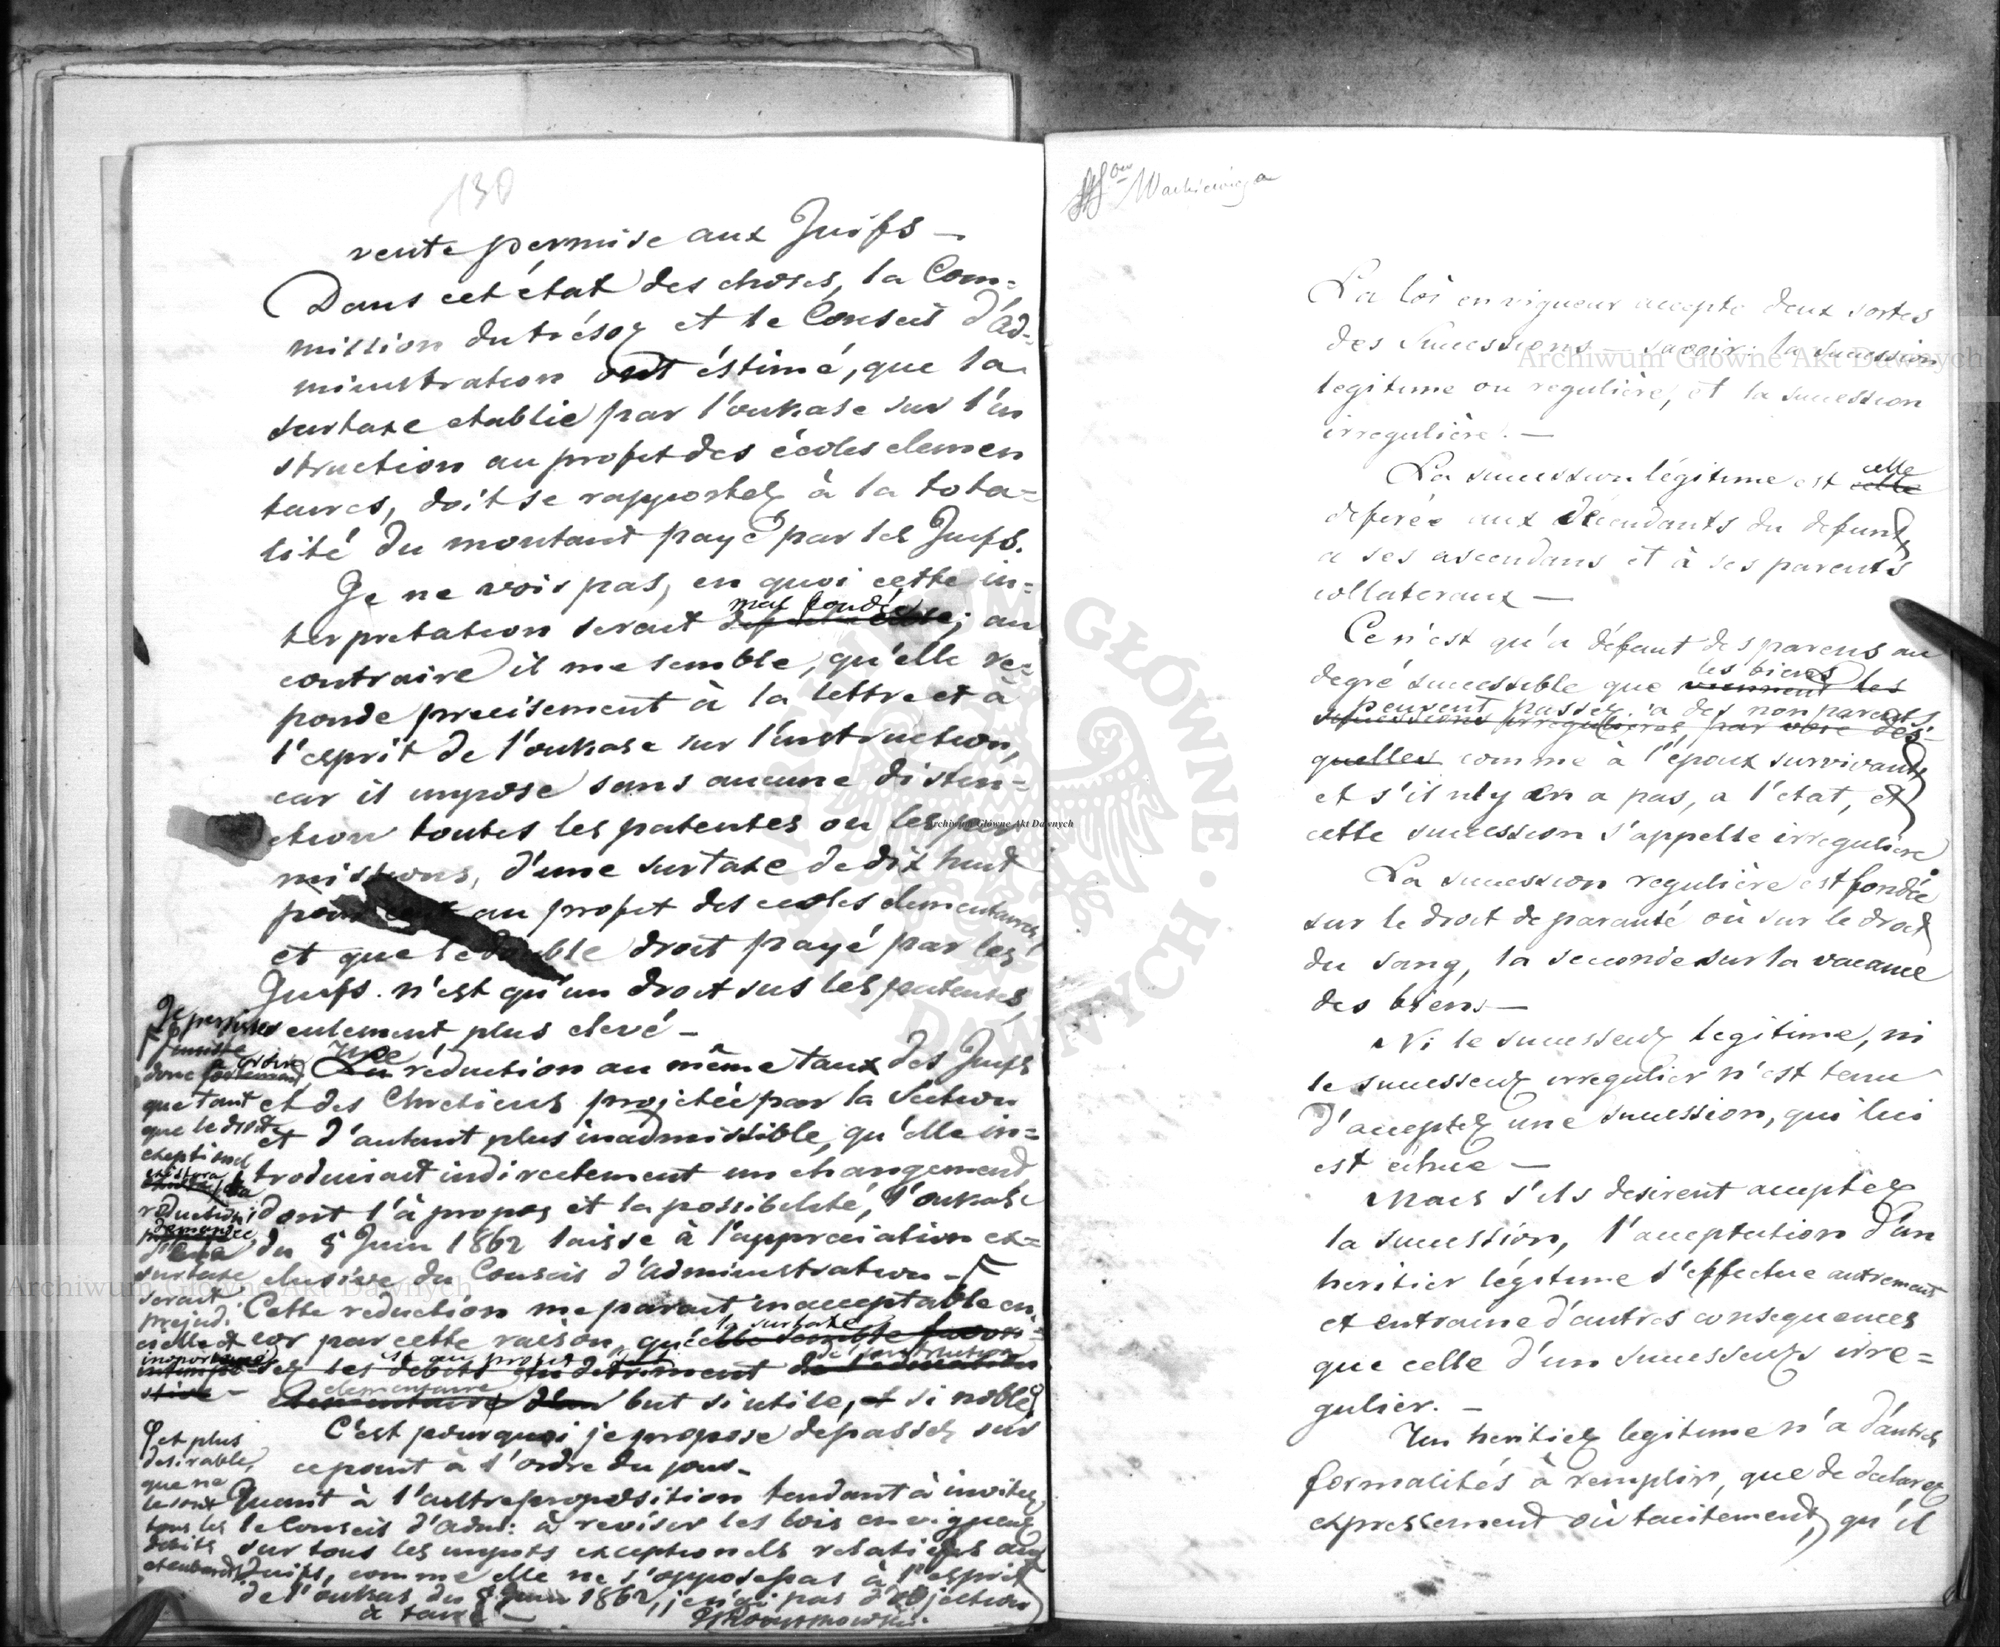 130
vente permise aux Juifs —
Dans cet état des choses, la Com=
mission du trésor et le Conseil d'ad=
ministration ont éstimé, que la
surtaxe etablie par l'oukase sur l'in
struction au profit des écoles elemen
taires, doit se rapporter à la tota=
lité du montant payé par les Juifs.
Je ne vois pas, en quoi cette in=
mal fondée
terpretation serait ; au
contraire il me semble, qu'elle re=
ponde precisement à la lettre et à
l'esprit de l'oukase sur l'instruction,
car il impose sans aucune distin=
ction toutes les patentes ou les per
missions, d'une surtaxe de dix huit
pour cent au profit des ecoles elementaires,
et que le double droit payé par les
Juifs n'est qu'un droit sus les patentes,
seulement plus elevé —
Une
La réduction au même taux des Juifs
et des Chretiens projetée par la Section
est d'autant plus inadmissible, qu'elle in=
troduirait indirectement un changement
dont l'à propos et la possibilité, l'oukase
du 5 Juin 1862 laisse à l'appreciation ex=
clusive du Conseil d'administration —
Cette reduction me parait inacceptable en
cor par cette raison, qu'elle semble favori=
la surtaxe
ser les debits au detriment de l'education
est au profit de l'instruction
elementaire
elementaire d'un but si utile, et si noble
C'est pourquoi je propose de passer sur
ce point à l'ordre du jour —
Quant à l'autre proposition tendant à inviter
le Conseil d'adm: à reviser les lois en vigueur
sur tous les impots exceptionels relatifs aux
Juifs, comme elle ne s'oppose pas à l'esprit
de l'oukas du 5 Juin 1862, je n'ai pas d'objection
à faire —
donc
que tant
que le droit
exeptionel
existera
reduction
demandée
d'une
surtaxe
serait
prejudi
cielle et
inopportune
et plus
desirable,
que ne
le sont
tous les
debits
et cabarets
La loi en vigueur accepte deux sortes
des Successions — savoir: la succession
legitime ou regulière, et la succession
irregulière. —
celle
La succession légitime est celle
deferée aux décendants du defunt,
a ses ascendans et à ses parents
collateraux —
Ce n'est qu'a défaut des parens au
les biens
degré successible que viennent les
peuvent passer a des non parents
successions irregulieres, par voie des=
quelles comme à l'époux survivant,
et s'il n'y en a pas, a l'etat, et
cette succession s'appelle irreguliere
La succession regulière est fondée
sur le droit de paranté où sur le droit
du sang, la seconde sur la vacance
des biens —
Ni le successeur legitime, ni
le successeur irregulier n'est tenu
d'accepter une succession, qui lui
est échue —
Mais s'ils desirent accepter
la succession, l'acceptation d'un
heritier légitime s'effectue autrement
et entraine d'autres consequences
que celle d'un successeur irre=
gulier. —
Un heritier legitime n'a d'autres
formalités à remplir, que de declarer
expressement où tacitement, qu'il
Archiwum Główne Akt Dawnych
Archiwum Główne Akt Dawnych
Archiwum Główne Akt Dawnych
ARCHIWUM GŁÓWNE AKT DAWNYCH